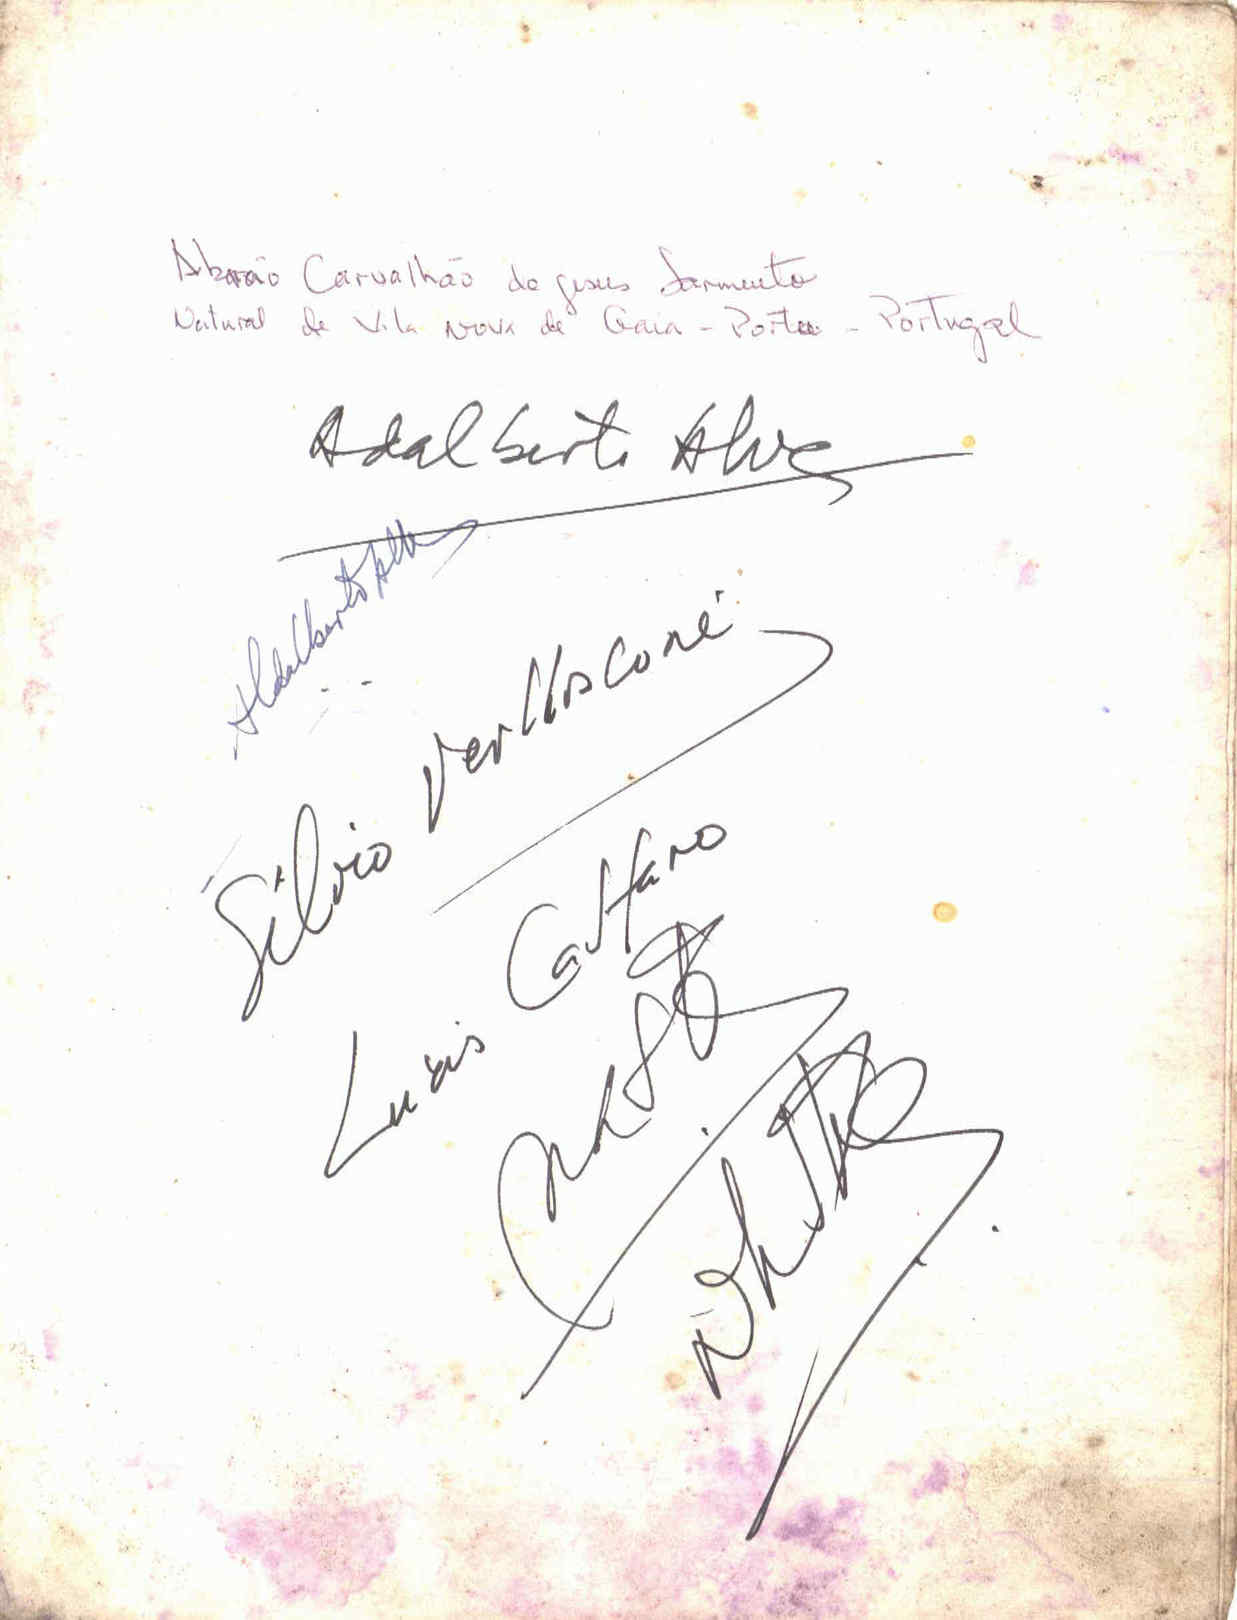 Abraão Carvalhão de Jesus Sarmento
Natural de Vila Nova de Gaia - Porto - Portugal
Adalberto Alves
Adalberto Alves
Silvio Verllosconi
Luais Calfaro